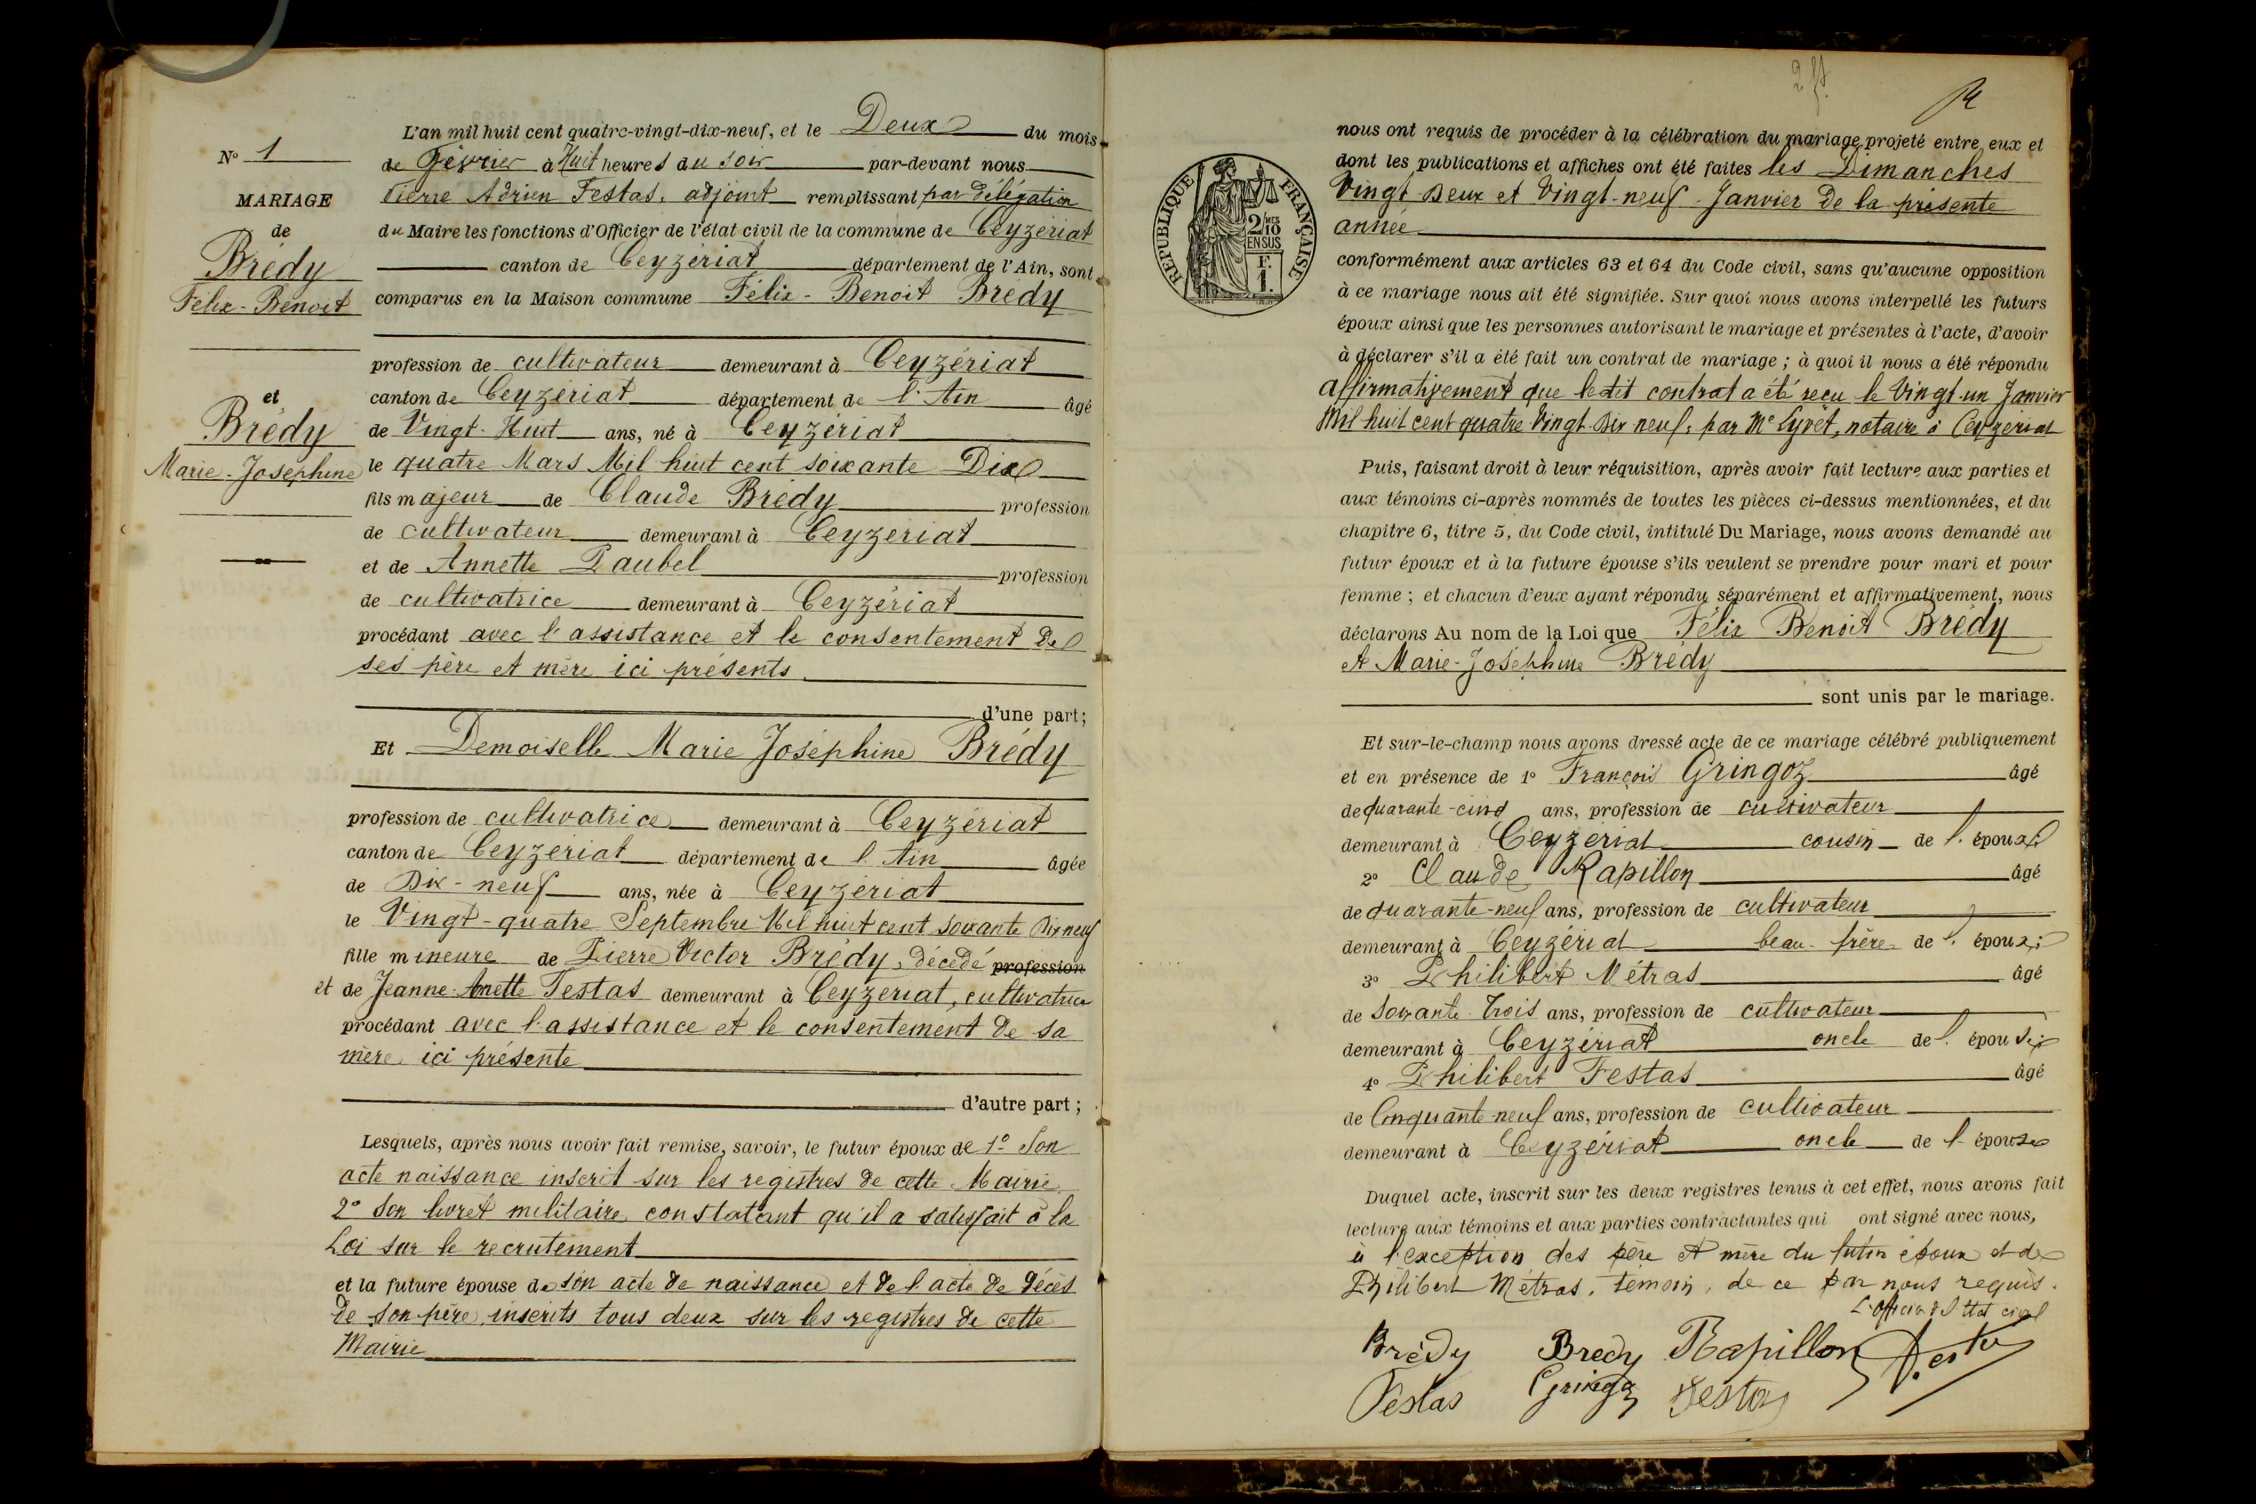 N° 1
MARIAGE
de
Brédy
Félix-Benoit
et
Brédy
Marie-Joséphine
L'an mil huit cent quatre-vingt-dix-neuf, et le Deux du mois
de Février à Huit heures du soir par-devant nous
Pierre Adrien Festas, adjoint remplissant par délégation
du Maire les fonctions d'Officier de l'état civil de la commune de Ceyzériat
canton de Ceyzériat département de l'Ain, sont
comparus en la Maison commune Félix-Benoit Brédy
profession de cultivateur demeurant à Ceyzériat
canton de Ceyzériat département de l'Ain âgé
de Vingt-Huit ans, né à Ceyzériat
le quatre Mars Mil huit cent soixante Dix
fils majeur de Claude Brédy profession
de cultivateur demeurant à Ceyzeriat
et de Annette Paubel profession
de cultivatrice demeurant à Ceyzériat
procédant avec l'assistance et le consentement de
ses père et mère ici présents
d'une part;
Et Demoiselle Marie Joséphine Brédy
profession de cultivatrice demeurant à Ceyzériat
canton de Ceyzériat département de l'Ain âgée
de Dix-neuf ans, née à Ceyzériat
le Vingt-quatre Septembre Mil huit cent soixante Dix neuf
fille mineure de Pierre Victor Brédy, décédé profession
et de Jeanne-Anette Festas demeurant à Ceyzeriat, cultivatrice
procédant avec l'assistance et le consentement de sa
mère ici présente
d'autre part;
Lesquels, après nous avoir fait remise, savoir, le futur époux de 1° Son
acte naissance inscrit sur les registres de cette Mairie
2° Son livret militaire constatant qu'il a satisfait à la
Loi sur le recrutement
et la future épouse de son acte de naissance et de l'acte de décès
de son père, inscrits tous deux sur les registres de cette
Mairie
RÉPUBLIQUE FRANÇAISE
2/10
EN SUS
F.
1.
nous ont requis de procéder à la célébration du mariage projeté entre eux et
dont les publications et affiches ont été faites les Dimanches
Vingt-Deux et Vingt-neuf Janvier de la présente
année
conformément aux articles 63 et 64 du Code civil, sans qu'aucune opposition
à ce mariage nous ait été signifiée. Sur quoi nous avons interpellé les futurs
époux ainsi que les personnes autorisant le mariage et présentes à l'acte, d'avoir
à déclarer s'il a été fait un contrat de mariage; à quoi il nous a été répondu
affirmativement que ledit contrat a été reçu le Vingt-un Janvier
Mil huit cent quatre Vingt Dix neuf, par Me notaire à Ceyzériat
Puis, faisant droit à leur réquisition, après avoir fait lecture aux parties et
aux témoins ci-après nommés de toutes les pièces ci-dessus mentionnées, et du
chapitre 6, titre 5, du Code civil, intitulé Du Mariage, nous avons demandé au
futur époux et à la future épouse s'ils veulent se prendre pour mari et pour
femme; et chacun d'eux ayant répondu séparément et affirmativement, nous
déclarons Au nom de la Loi que Félix Benoit Brédy
et Marie-Joséphine Brédy
sont unis par le mariage.
Et sur-le-champ nous avons dressé acte de ce mariage célébré publiquement
et en présence de 1° François Gringoz âgé
de quarante-cinq ans, profession de cultivateur
demeurant à Ceyzériat cousin de l'époux;
2° Claude Rapillon âgé
de quarante-neuf ans, profession de cultivateur
demeurant à Ceyzériat beau-frère de l'époux;
3° Philibert Métras âgé
de soixante-Trois ans, profession de cultivateur
demeurant à Ceyzériat oncle de l'épouse;
4° Philibert Festas âgé
de Cinquante-neuf ans, profession de cultivateur
demeurant à Ceyzériat oncle de l'épouse
Duquel acte, inscrit sur les deux registres tenus à cet effet, nous avons fait
lecture aux témoins et aux parties contractantes qui ont signé avec nous,
à l'exception des père et mère du futur époux et de
Philibert Métras, témoin, de ce par nous requis.
L'officier de l'Etat civil
Brédy Bredy Rapillon Festas
Festas Gringoz Festas